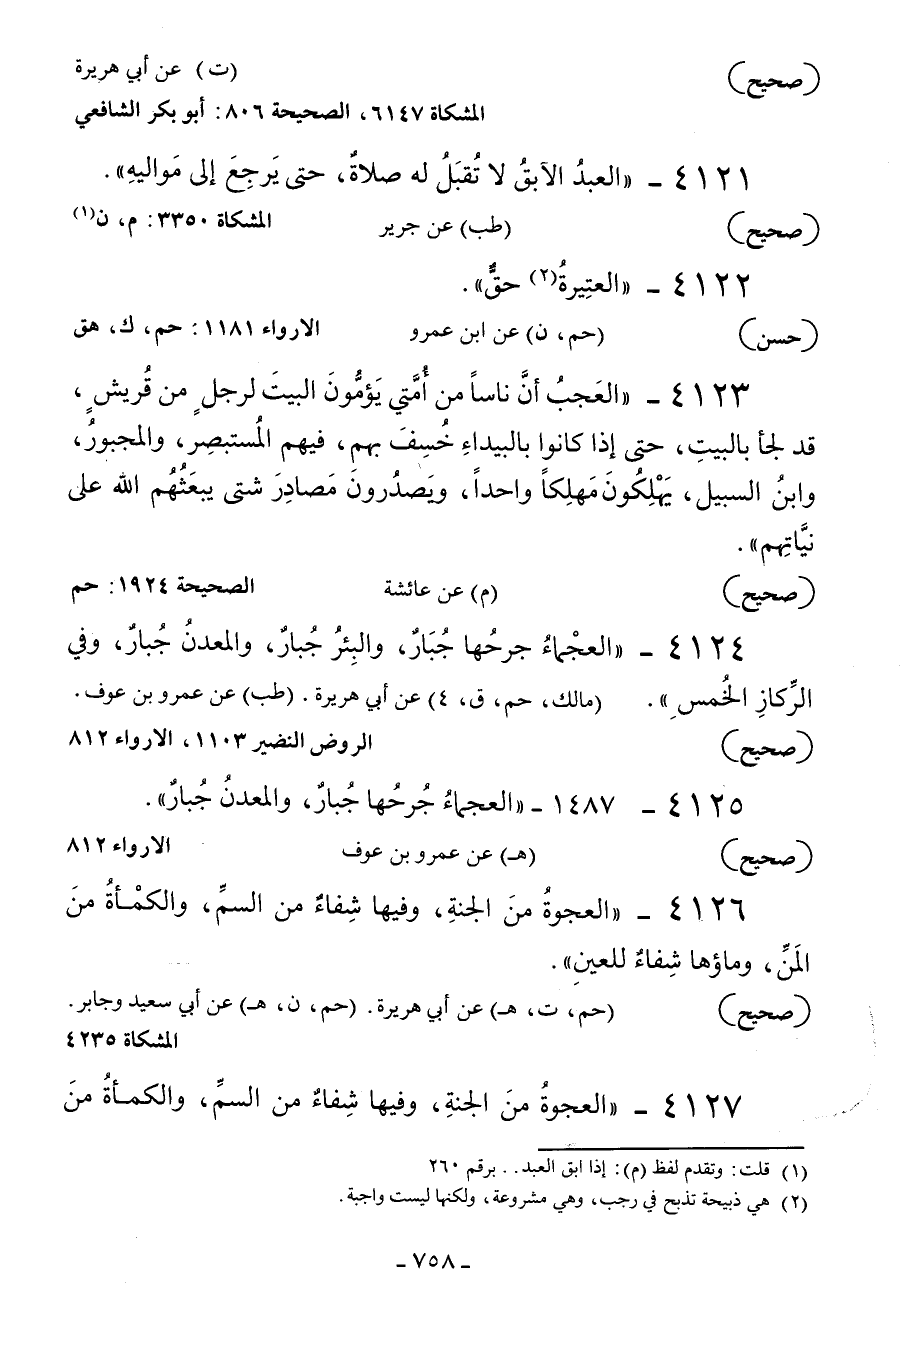 (صحيح) (ت) عن أبي هريرة
المشكاة ٦١٤٧، الصحيحة ٨٠٦: أبو بكر الشافعي
٤١٢١ - «العبدُ الآبقُ لا تُقبَلُ له صلاةٌ، حتى يَرجِعَ إلى مَواليهِ».
(صحيح) (طب) عن جرير المشكاة ٣٣٥٠: م، ن(١)
٤١٢٢ - «العتِيرةُ(٢) حقٌّ».
(حسن) (حم، ن) عن ابن عمرو الارواء ١١٨١: حم، ك، هق
٤١٢٣ - «العَجبُ أنَّ ناساً من أُمَّتي يَؤمُّونَ البيتَ لرجلٍ من قُريشٍ،
قد لجأ بالبيتِ، حتى إذا كانوا بالبيداءِ خُسِفَ بهم، فيهم المُستبصِر، والمجبورُ،
وابنُ السبيل، يَهْلِكُونَ مَهلِكاً واحداً، ويَصدُرونَ مَصادِرَ شتى يبعَثُهُم الله على
نيَّاتِهم».
(صحيح) (م) عن عائشة الصحيحة ١٩٢٤: حم
٤١٢٤ - «العجْماءُ جرحُها جُبَارٌ، والبِئرُ جُبارٌ، والمعدنُ جُبارٌ، وفي
الرِّكازِ الخُمسِ». (مالك، حم، ق، ٤) عن أبي هريرة. (طب) عن عمرو بن عوف.
(صحيح) الروض النضير ١١٠٣، الارواء ٨١٢
٤١٢٥ - ١٤٨٧ - «العجماءُ جُرحُها جُبارٌ، والمعدنُ جُبارٌ».
(صحيح) (هـ) عن عمرو بن عوف الارواء ٨١٢
٤١٢٦ - «العجوةُ منَ الجنةِ، وفيها شِفاءٌ من السمِّ، والكمْأةُ منَ
المَنِّ، وماؤها شِفاءٌ للعينِ».
(صحيح) (حم، ت، هـ) عن أبي هريرة. (حم، ن، هـ) عن أبي سعيد وجابر.
المشكاة ٤٢٣٥
٤١٢٧ - «العجوةُ منَ الجنةِ، وفيها شِفاءٌ من السمِّ، والكمأةُ منَ
(١) قلت: وتقدم لفظ (م): إذا ابق العبد.. برقم ٢٦٠
(٢) هي ذبيحة تذبح في رجب، وهي مشروعة، ولكنها ليست واجبة.
- ٧٥٨ -